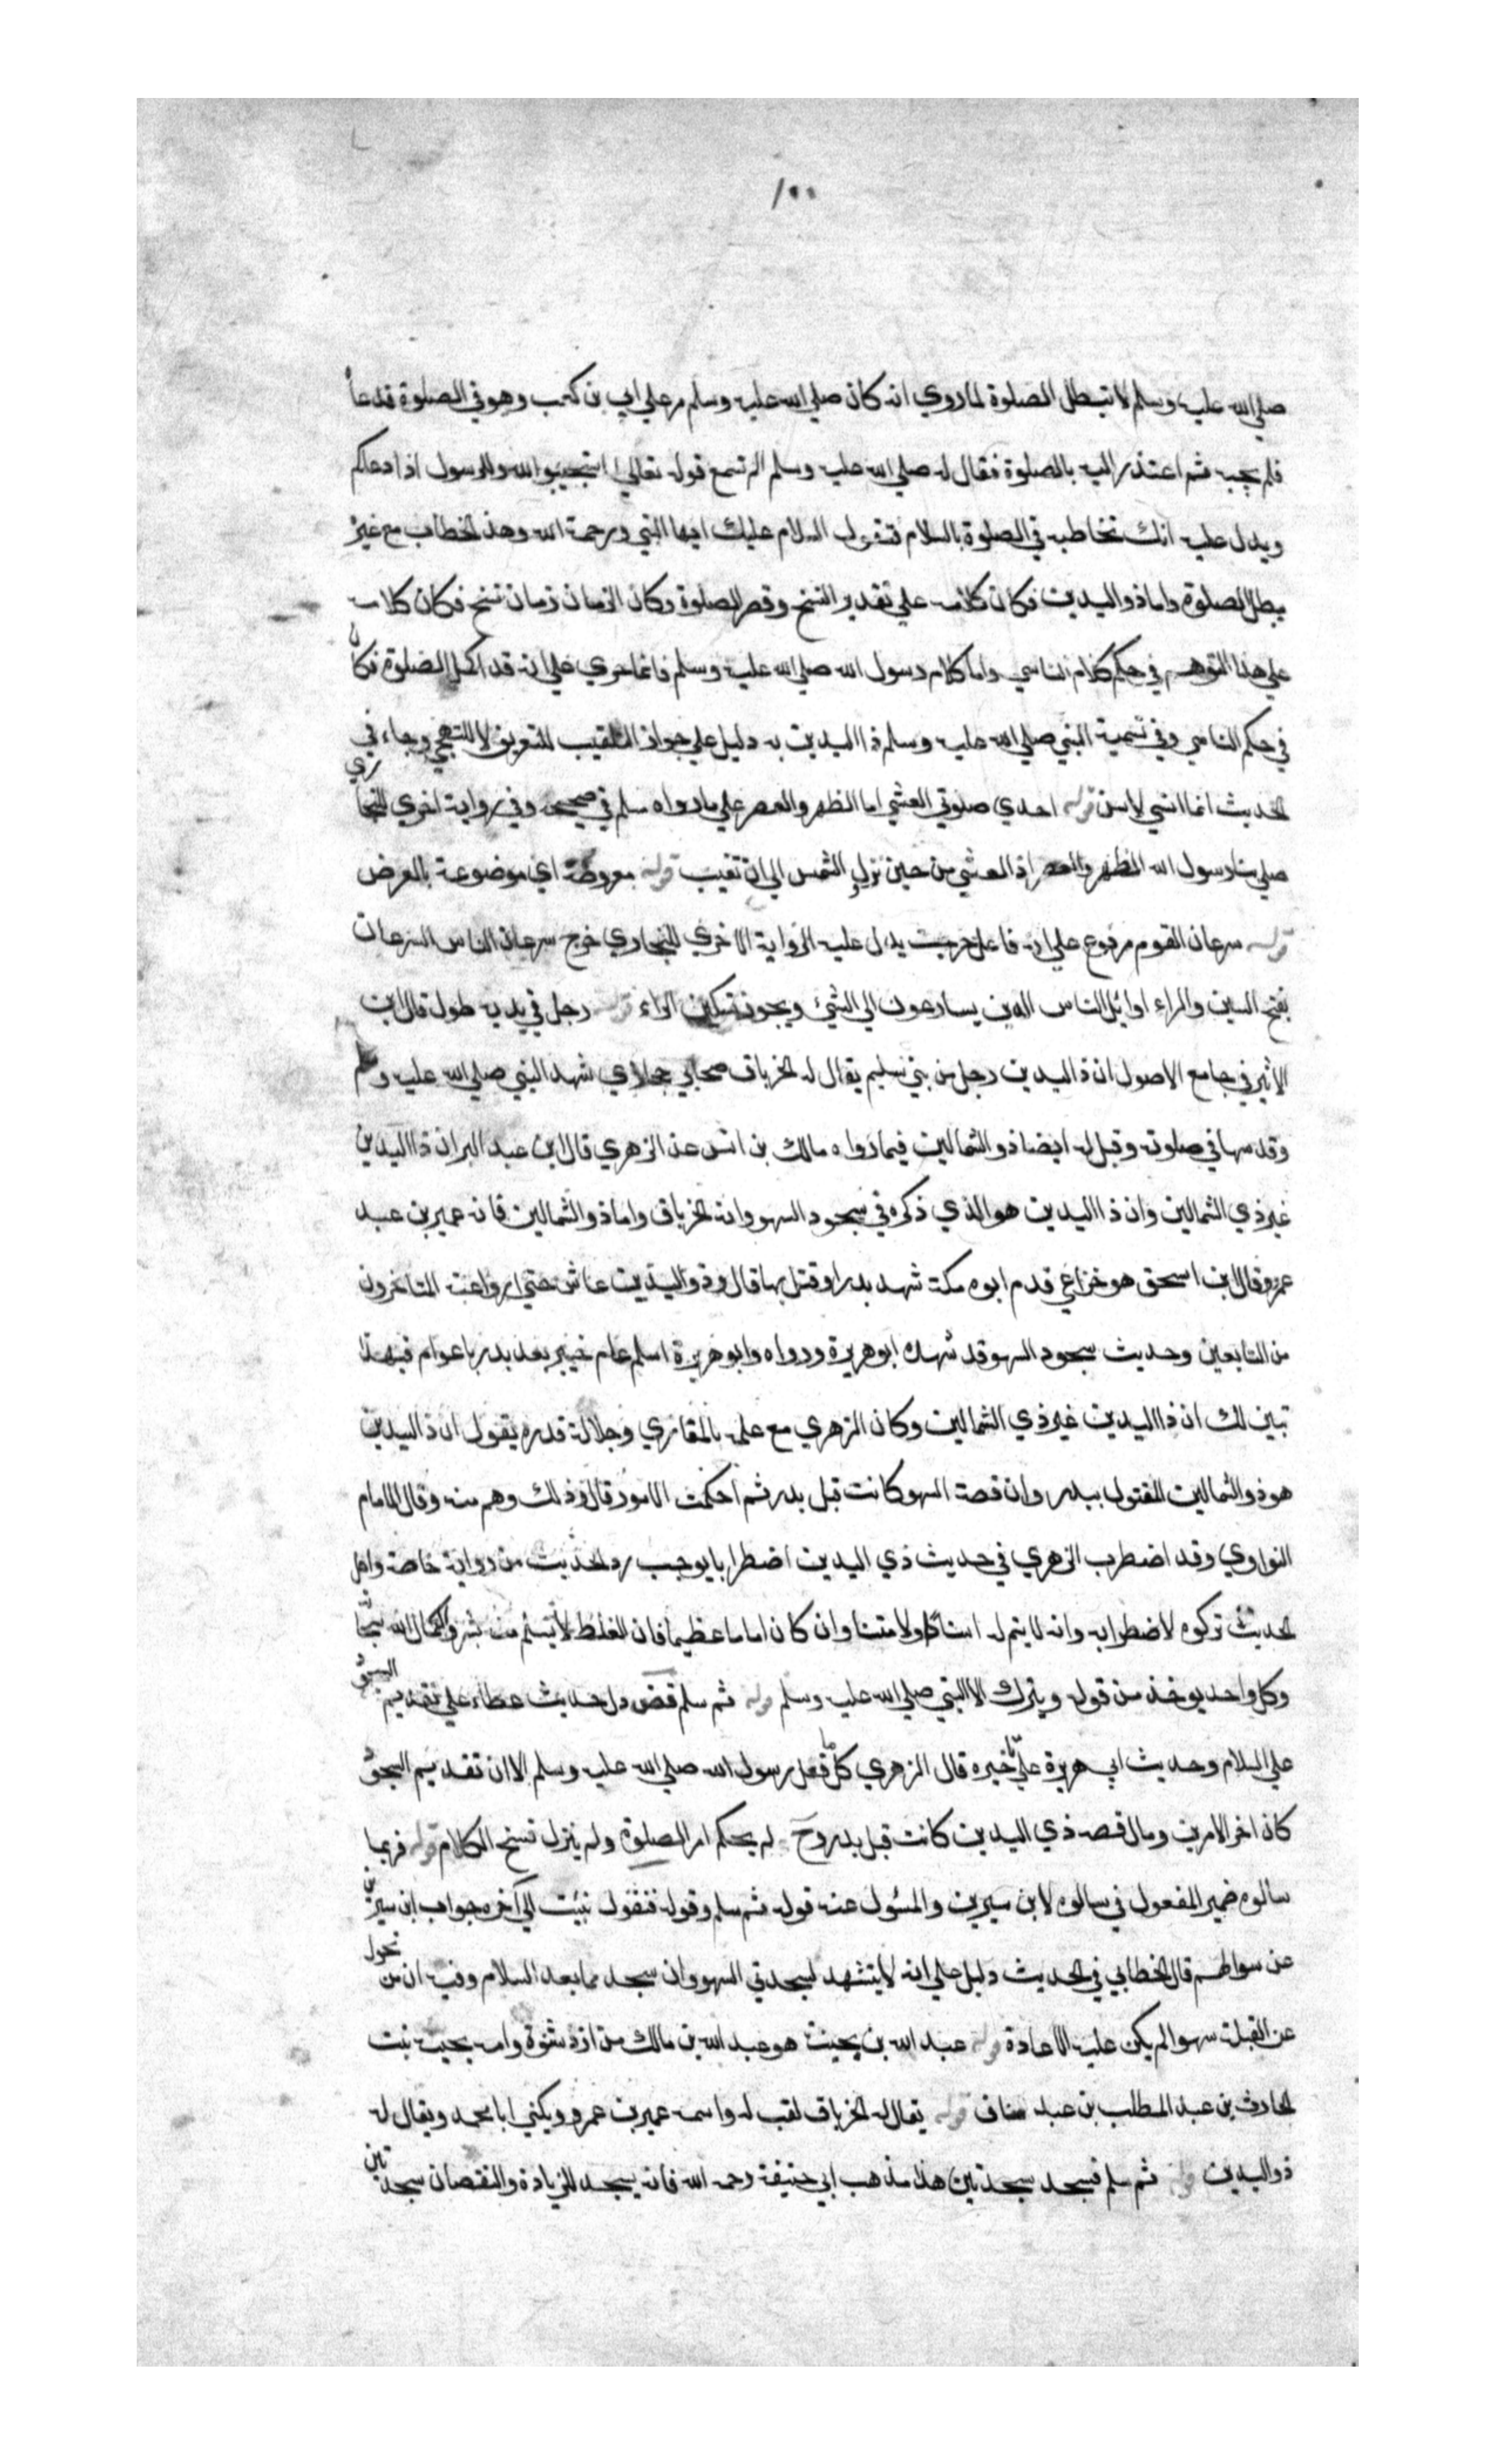 ١٠٠
صلي الله عليه وسلم لا تبطل الصلوة لما روي انه كان صلي الله عليه وسلم مر علي ابي بن كعب وهو في الصلوة فدعاه
فلم يجبه ثم اعتذر اليه بالصلوة فقال له صلي الله عليه وسلم الم تسمع قوله تعالي استجيبوا لله وللرسول اذا دعاكم
ويدل عليه انك تخاطبه في الصلوة بالسلام فتقول السلام عليك ايها النبي ورحمة الله وهذا الخطاب مع غيره
يبطل الصلوة واما ذو اليدين فكان كلامه علي تقدير النسخ وقصر الصلوة وكان الزمان زمان نسخ فكان كلامه
علي هذا التوهم في حكم كلام الناسي واما كلام رسول الله صلي الله عليه وسلم فانما جري علي انه قد اكمل الصلوة فكان
في حكم الناسي وفي تسمية النبي صلي الله عليه وسلم ذا اليدين به دليل علي جواز التلقيب للتعريف لا للتهجي وجاء في
الحديث انما انسي لاسن قوله احدي صلوتي العشي اما الظهر والعصر علي ما رواه مسلم في صحيحه وفي رواية اخري للبخاري
صلي بنا رسول الله الظهر والعصر اذ العشي من حين تزول الشمس الي ان تغيب قوله معروضة اي موضوعة بالعرض
قوله سرعان القوم مرفوع علي انه فاعل خرجت يدل عليه الرواية الاخري للبخاري خرج سرعان الناس السرعان
بفتح السين والراء اوائل الناس الذين يسارعون الي الشيء ويجوز تسكين الراء قوله رجل في يديه طول قال ابن
الاثير في جامع الاصول ان ذا اليدين رجل من بني سليم يقال له الخرباق صحابي حجازي شهد النبي صلي الله عليه وسلم
وقد سها في صلوته وقيل له ايضا ذو الشمالين فيما رواه مالك بن انس عن الزهري قال ابن عبد البر ان ذا اليدين
غير ذي الشمالين وان ذا اليدين هو الذي ذكره في سجود السهو وانه الخرباق واما ذو الشمالين فانه عمير بن عبد
عمرو قال ابن اسحق هو خزاعي قدم ابوه مكة شهد بدرا وقتل بها قال وذو اليدين عاش حتي روا عنه المتاخرون
من التابعين وحديث سجود السهو قد شهده ابو هريرة ورواه وابو هريرة اسلم عام خيبر بعد بدر باعوام فبهذا
تبين لك ان ذا اليدين غير ذي الشمالين وكان الزهري مع علمه بالمغازي وجلالة قدره يقول ان ذا اليدين
هو ذو الشمالين المقتول ببدر وان قصة السهو كانت قبل بدر ثم احكمت الامور قال وذلك وهم منه وقال الامام
النواوي وقد اضطرب الزهري في حديث ذي اليدين اضطرابا يوجب رد الحديث من رواية خاصة واهل
الحديث تركوه لاضطرابه وانه لا يتم له اسنادا ولا متنا وان كان اماما عظيما فان الغلط لا يسلم منه بشر والكمال لله
وكل واحد يوخذ من قوله ويترك الا النبي صلي الله عليه وسلم قوله ثم سلم قض دل حديث عطاء علي تقديم السجود
علي السلام وحديث ابي هريرة علي تاخيره قال الزهري كل فعل رسول الله صلي الله عليه وسلم الا ان تقديم السجود
كان اخر الامرين ومال قصه ذي اليدين كانت قبل بدر وح لم يحكم امر الصلوة ولم ينزل نسخ الكلام قوله فربما
سالوه ضمير المفعول في سالوه لابن سيرين والمسئول عنه قوله ثم سلم وقوله فنقول نبئت الي آخره جواب ابن سيرين
عن سوالهم قال الخطابي في الحديث دليل علي انه لا يتشهد لسجدتي السهو وان سجدهما بعد السلام وفيه ان من تحول
عن القبلة سهوا لم يكن عليه الاعادة قوله عبد الله بن بحينة هو عبد الله بن مالك من ازد شنوة وامه بحينة بنت
الحارث بن عبد المطلب بن عبد مناف قوله يقال له الخرباق لقب له واسمه عمير بن عمرو ويكني ابا محمد ويقال له
ذو اليدين قوله ثم سلم فسجد سجدتين هذا مذهب ابي حنيفة رحمه الله فانه يسجد للزيادة والنقصان سجدتين